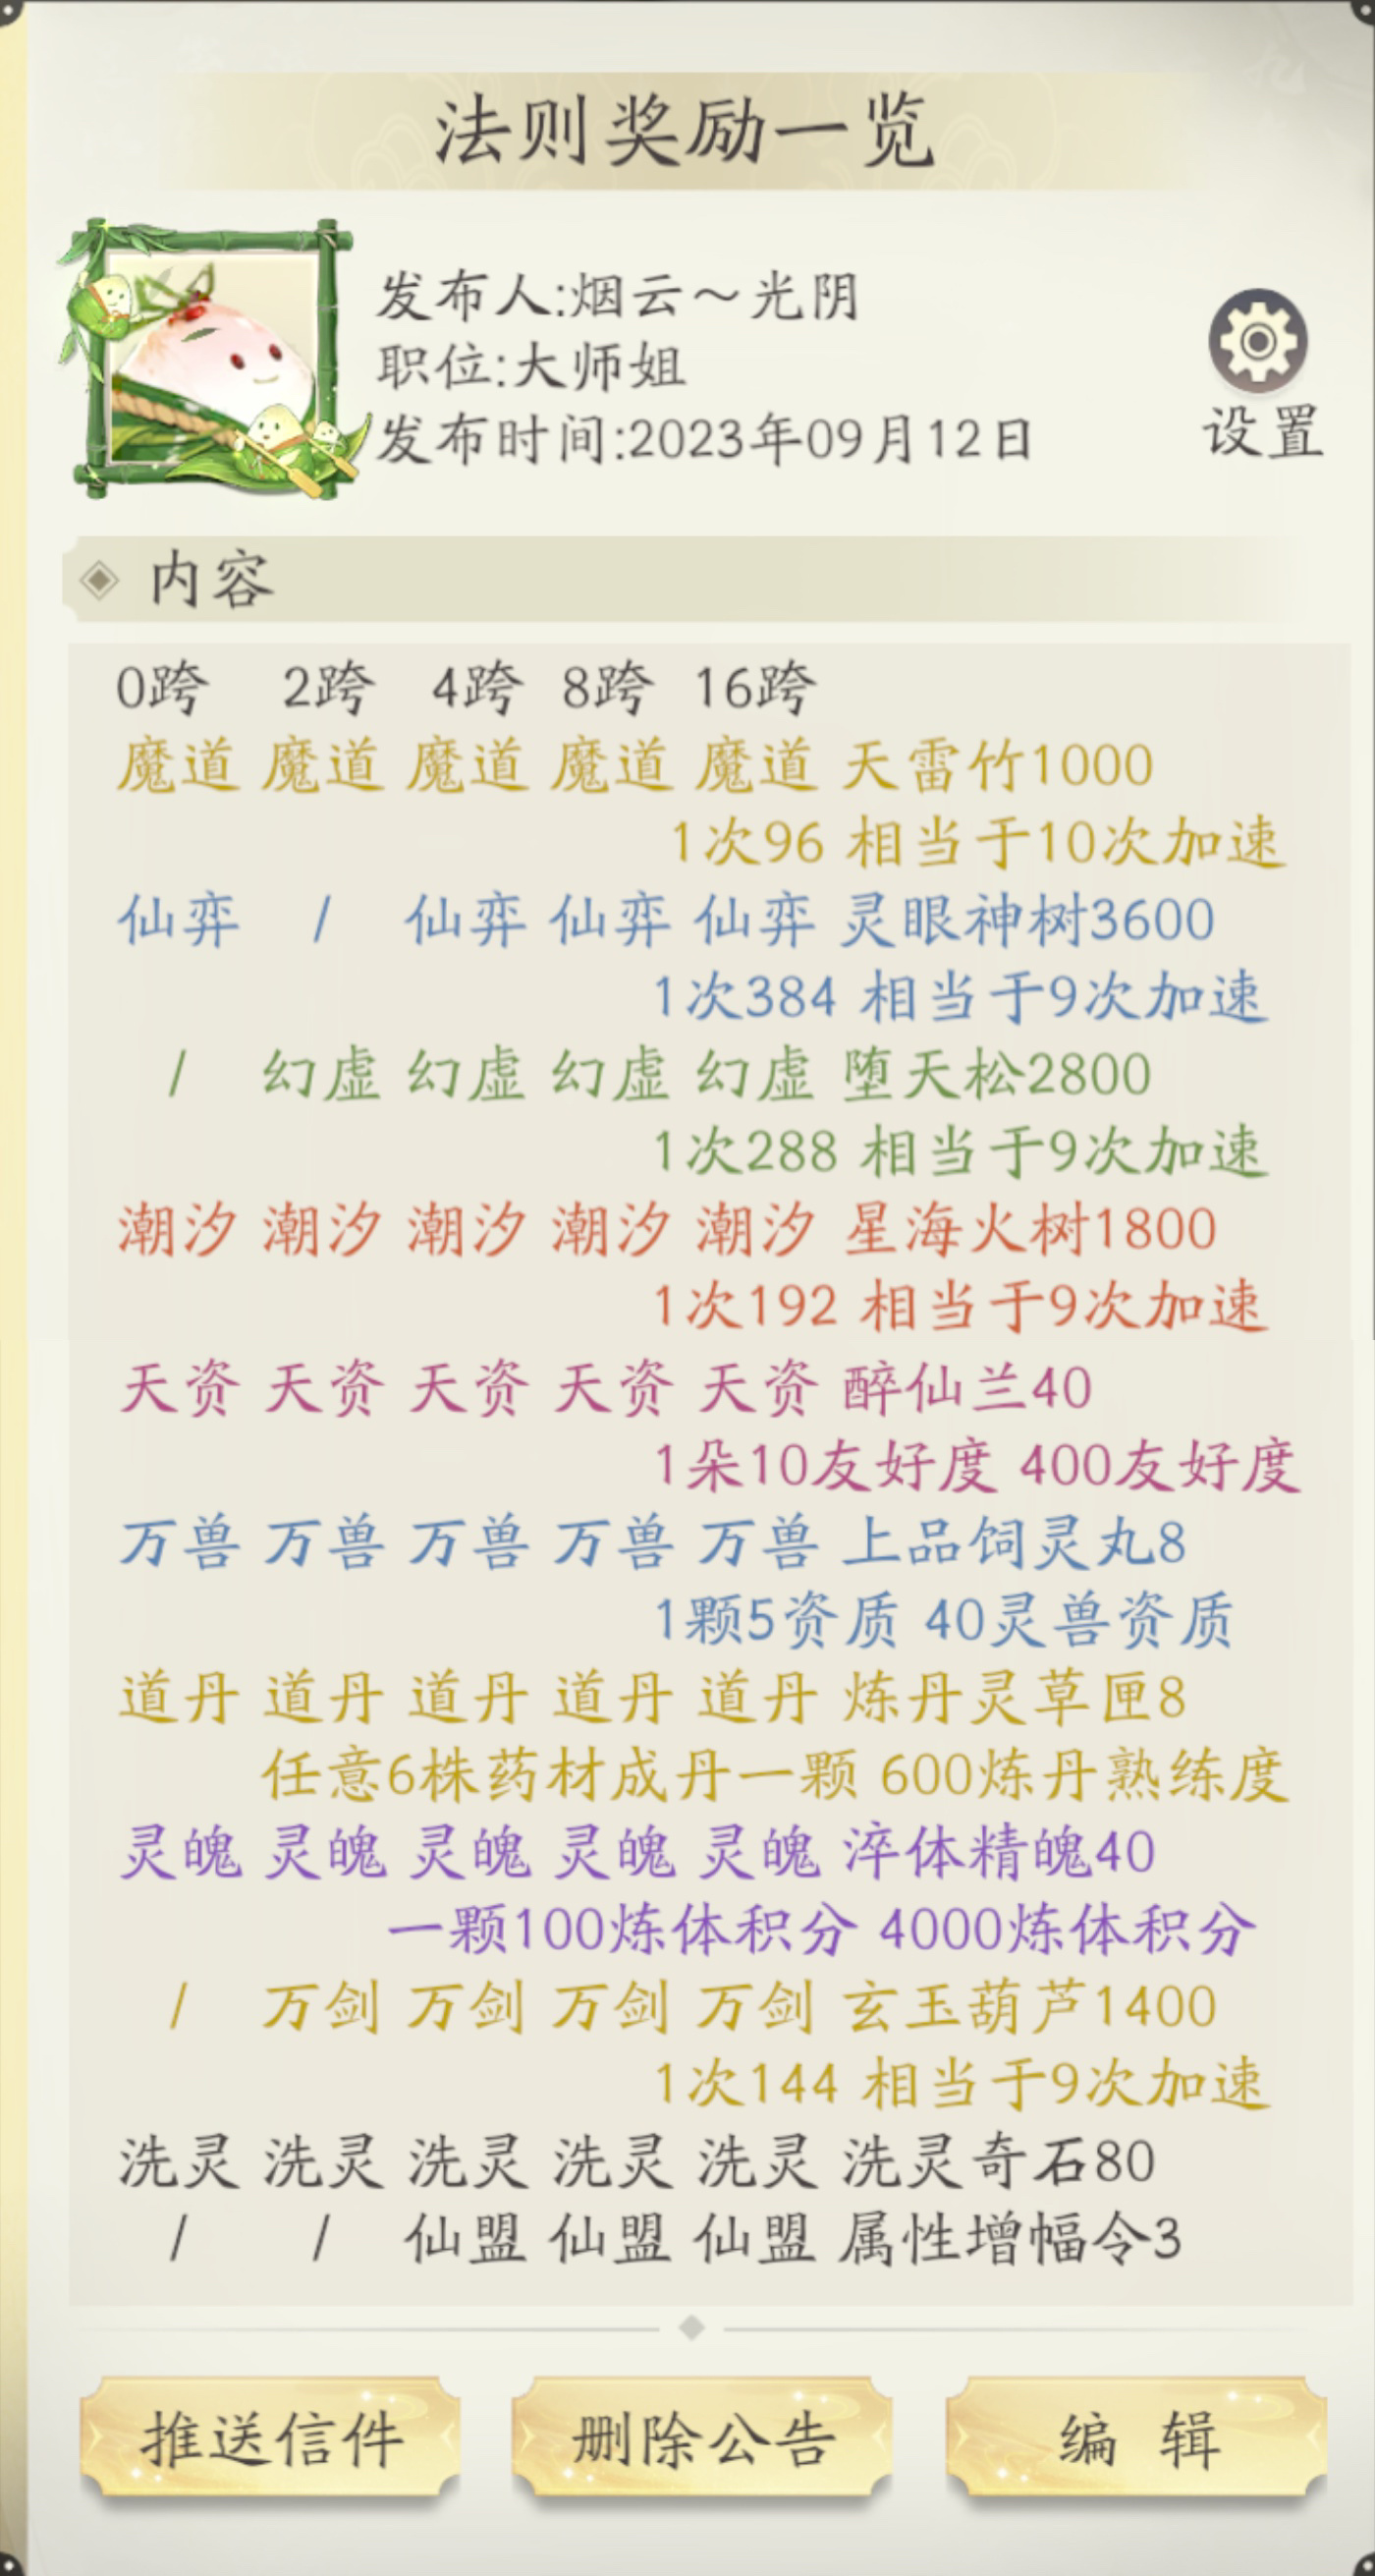 法则奖励一览
发布人:烟云～光阴
职位:大师姐
发布时间:2023年09月12日
设置
内容
0跨 2跨 4跨 8跨 16跨
魔道 魔道 魔道 魔道 魔道 天雷竹1000
1次96 相当于10次加速
仙弈 / 仙弈 仙弈 仙弈 灵眼神树3600
1次384 相当于9次加速
/ 幻虚 幻虚 幻虚 幻虚 堕天松2800
1次288 相当于9次加速
潮汐 潮汐 潮汐 潮汐 潮汐 星海火树1800
1次192 相当于9次加速
天资 天资 天资 天资 天资 醉仙兰40
1朵10友好度 400友好度
万兽 万兽 万兽 万兽 万兽 上品饲灵丸8
1颗5资质 40灵兽资质
道丹 道丹 道丹 道丹 道丹 炼丹灵草匣8
任意6株药材成丹一颗 600炼丹熟练度
灵魄 灵魄 灵魄 灵魄 灵魄 淬体精魄40
一颗100炼体积分 4000炼体积分
/ 万剑 万剑 万剑 万剑 玄玉葫芦1400
1次144 相当于9次加速
洗灵 洗灵 洗灵 洗灵 洗灵 洗灵奇石80
/ / 仙盟 仙盟 仙盟 属性增幅令3
推送信件
删除公告
编 辑